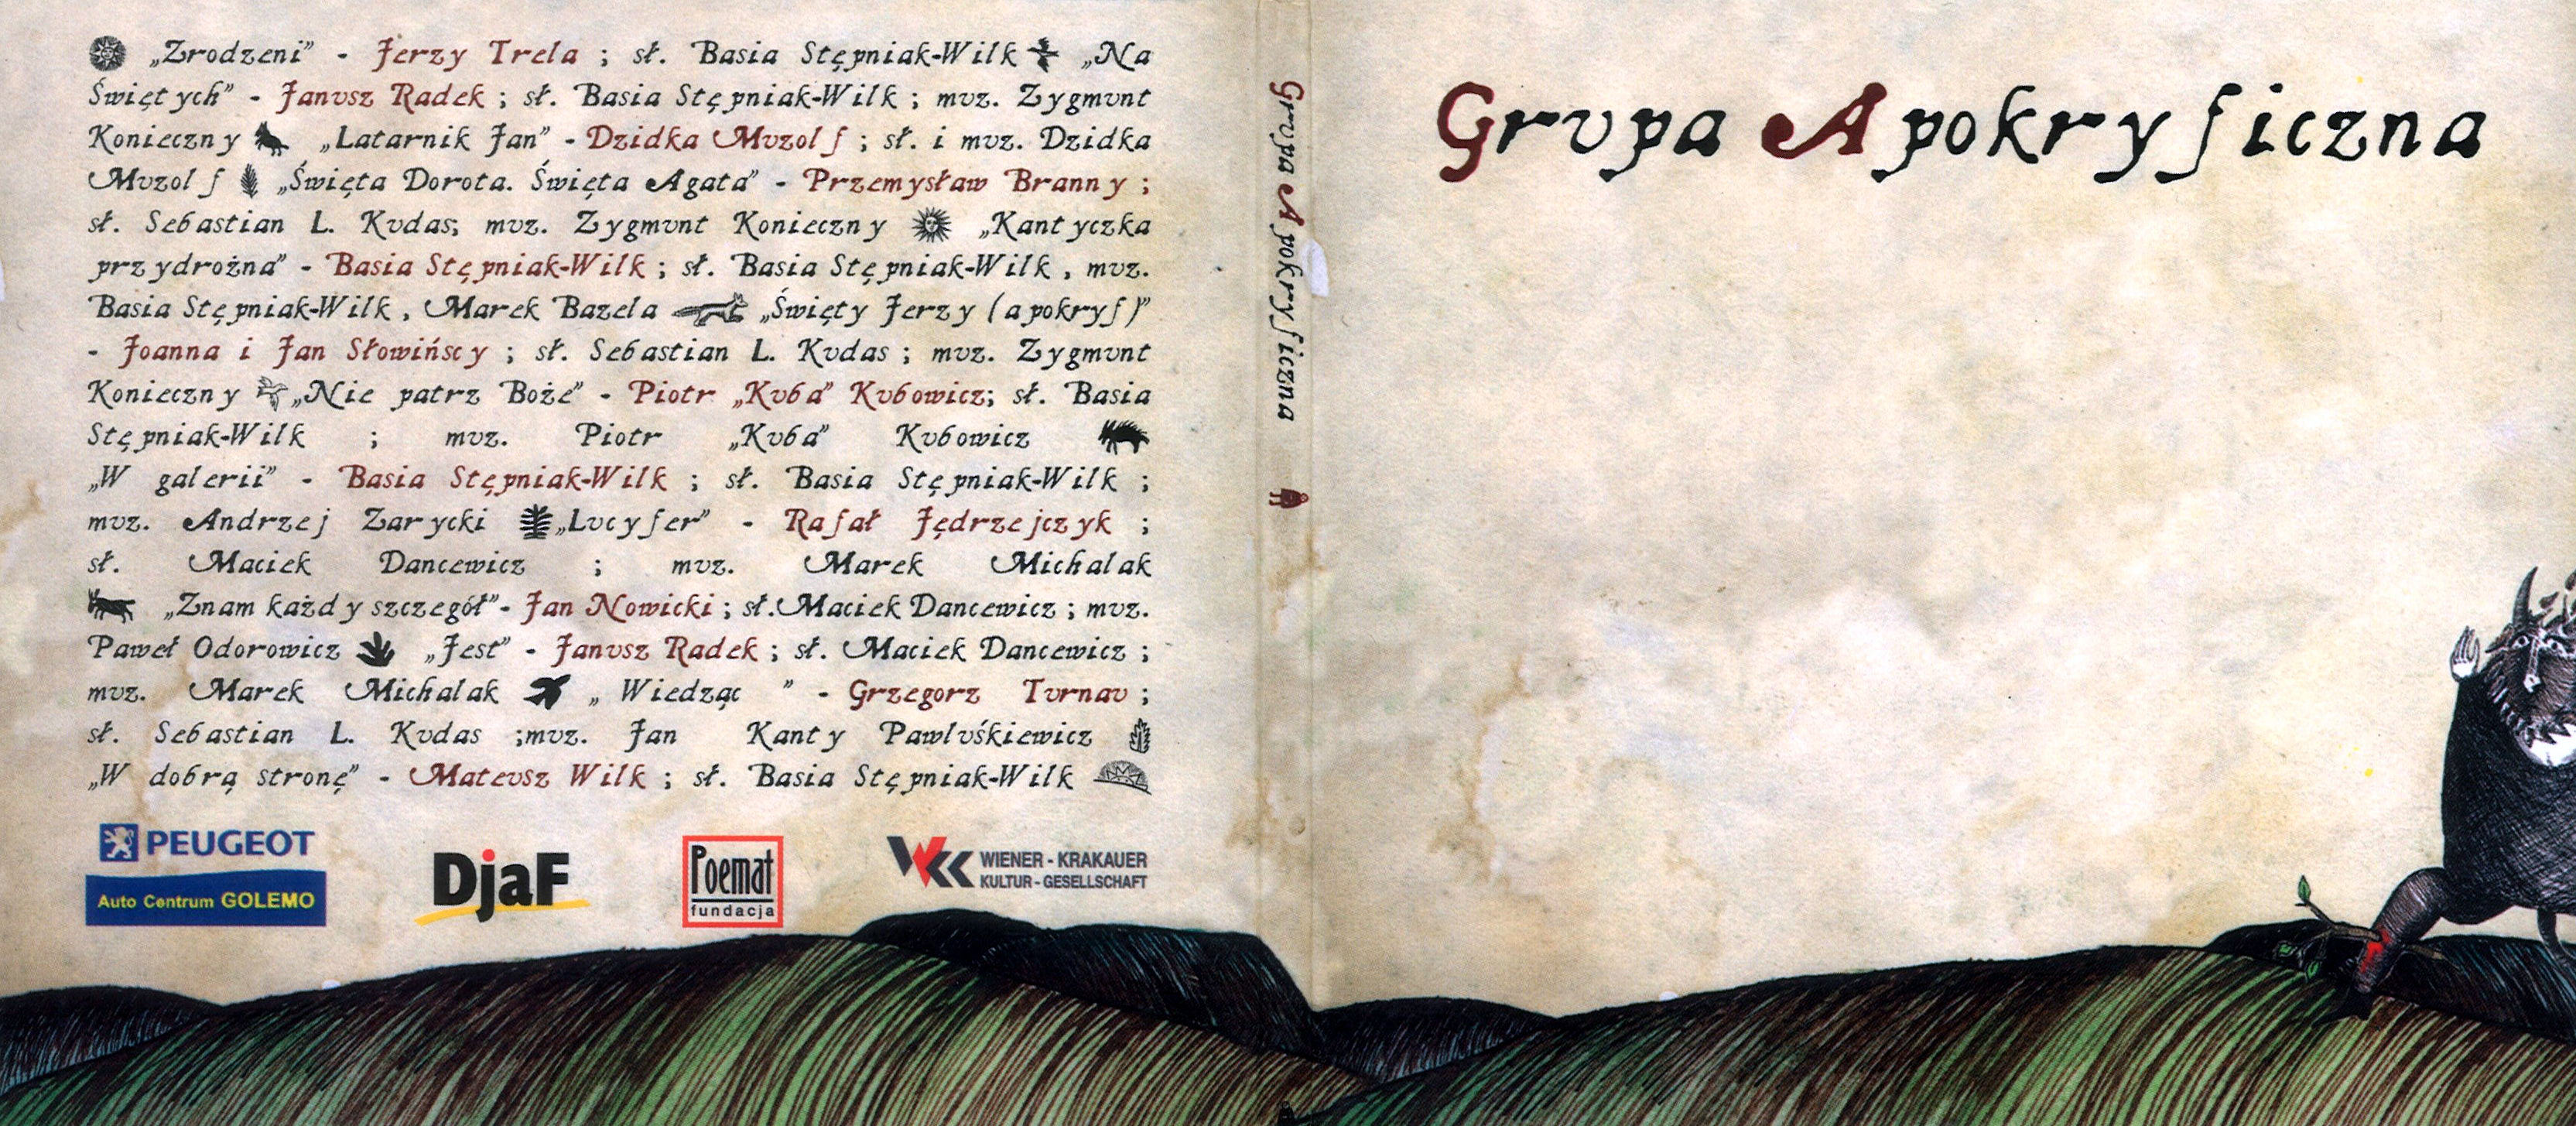 „Zrodzeni” - Jerzy Trela ; sł. Basia Stępniak-Wilk „Na
Świętych” - Janvsz Radek ; sł. Basia Stępniak-Wilk ; mvz. Zygmvnt
Konieczny „Latarnik Jan” - Dzidka Mvzolf ; sł. i mvz. Dzidka
Mvzolf „Święta Dorota. Święta Agata” - Przemysław Branny ;
sł. Sebastian L. Kvdas; mvz. Zygmvnt Konieczny „Kantyczka
przydrożna” - Basia Stępniak-Wilk ; sł. Basia Stępniak-Wilk , mvz.
Basia Stępniak-Wilk , Marek Bazela „Święty Jerzy (apokryf)”
- Joanna i Jan Słowińscy ; sł. Sebastian L. Kvdas ; mvz. Zygmvnt
Konieczny „Nie patrz Boże” - Piotr „Kvba” Kvbowicz; sł. Basia
Stępniak-Wilk ; mvz. Piotr „Kvba” Kvbowicz
„W galerii” - Basia Stępniak-Wilk ; sł. Basia Stępniak-Wilk ;
mvz. Andrzej Zarycki „Lvcyfer” - Rafał Jędrzejczyk ;
sł. Maciek Dancewicz ; mvz. Marek Michalak
„Znam każdy szczegół”- Jan Nowicki ; sł. Maciek Dancewicz ; mvz.
Paweł Odorowicz „Jest” - Janvsz Radek ; sł. Maciek Dancewicz ;
mvz. Marek Michalak „ Wiedząc ” - Grzegorz Tvrnav ;
sł. Sebastian L. Kvdas ;mvz. Jan Kanty Pawlvśkiewicz
„W dobrą stronę” - Matevsz Wilk ; sł. Basia Stępniak-Wilk
PEUGEOT
Auto Centrum GOLEMO
DjaF
Poemat
fundacja
WKK WIENER - KRAKAUER
KULTUR - GESELLSCHAFT
Grvpa Apokryficzna
Grvpa Apokryficzna